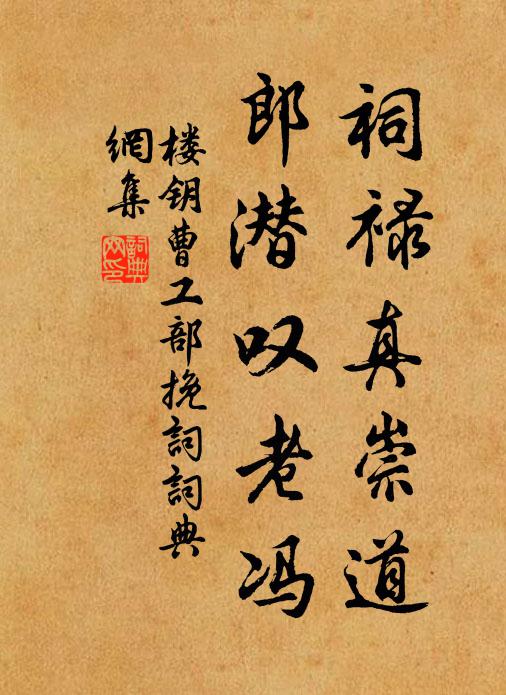 祠禄真崇道
郎潜叹老冯
楼钥曹工部挽詞詞典
網集
詞典
网印